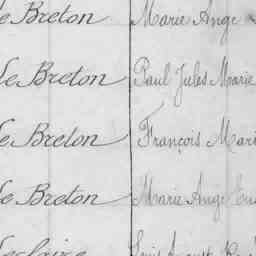 le Breton Marie Ange
le Breton Paul Jules Marie
le Breton François Mari
le Breton Marie Ange
Leclaire